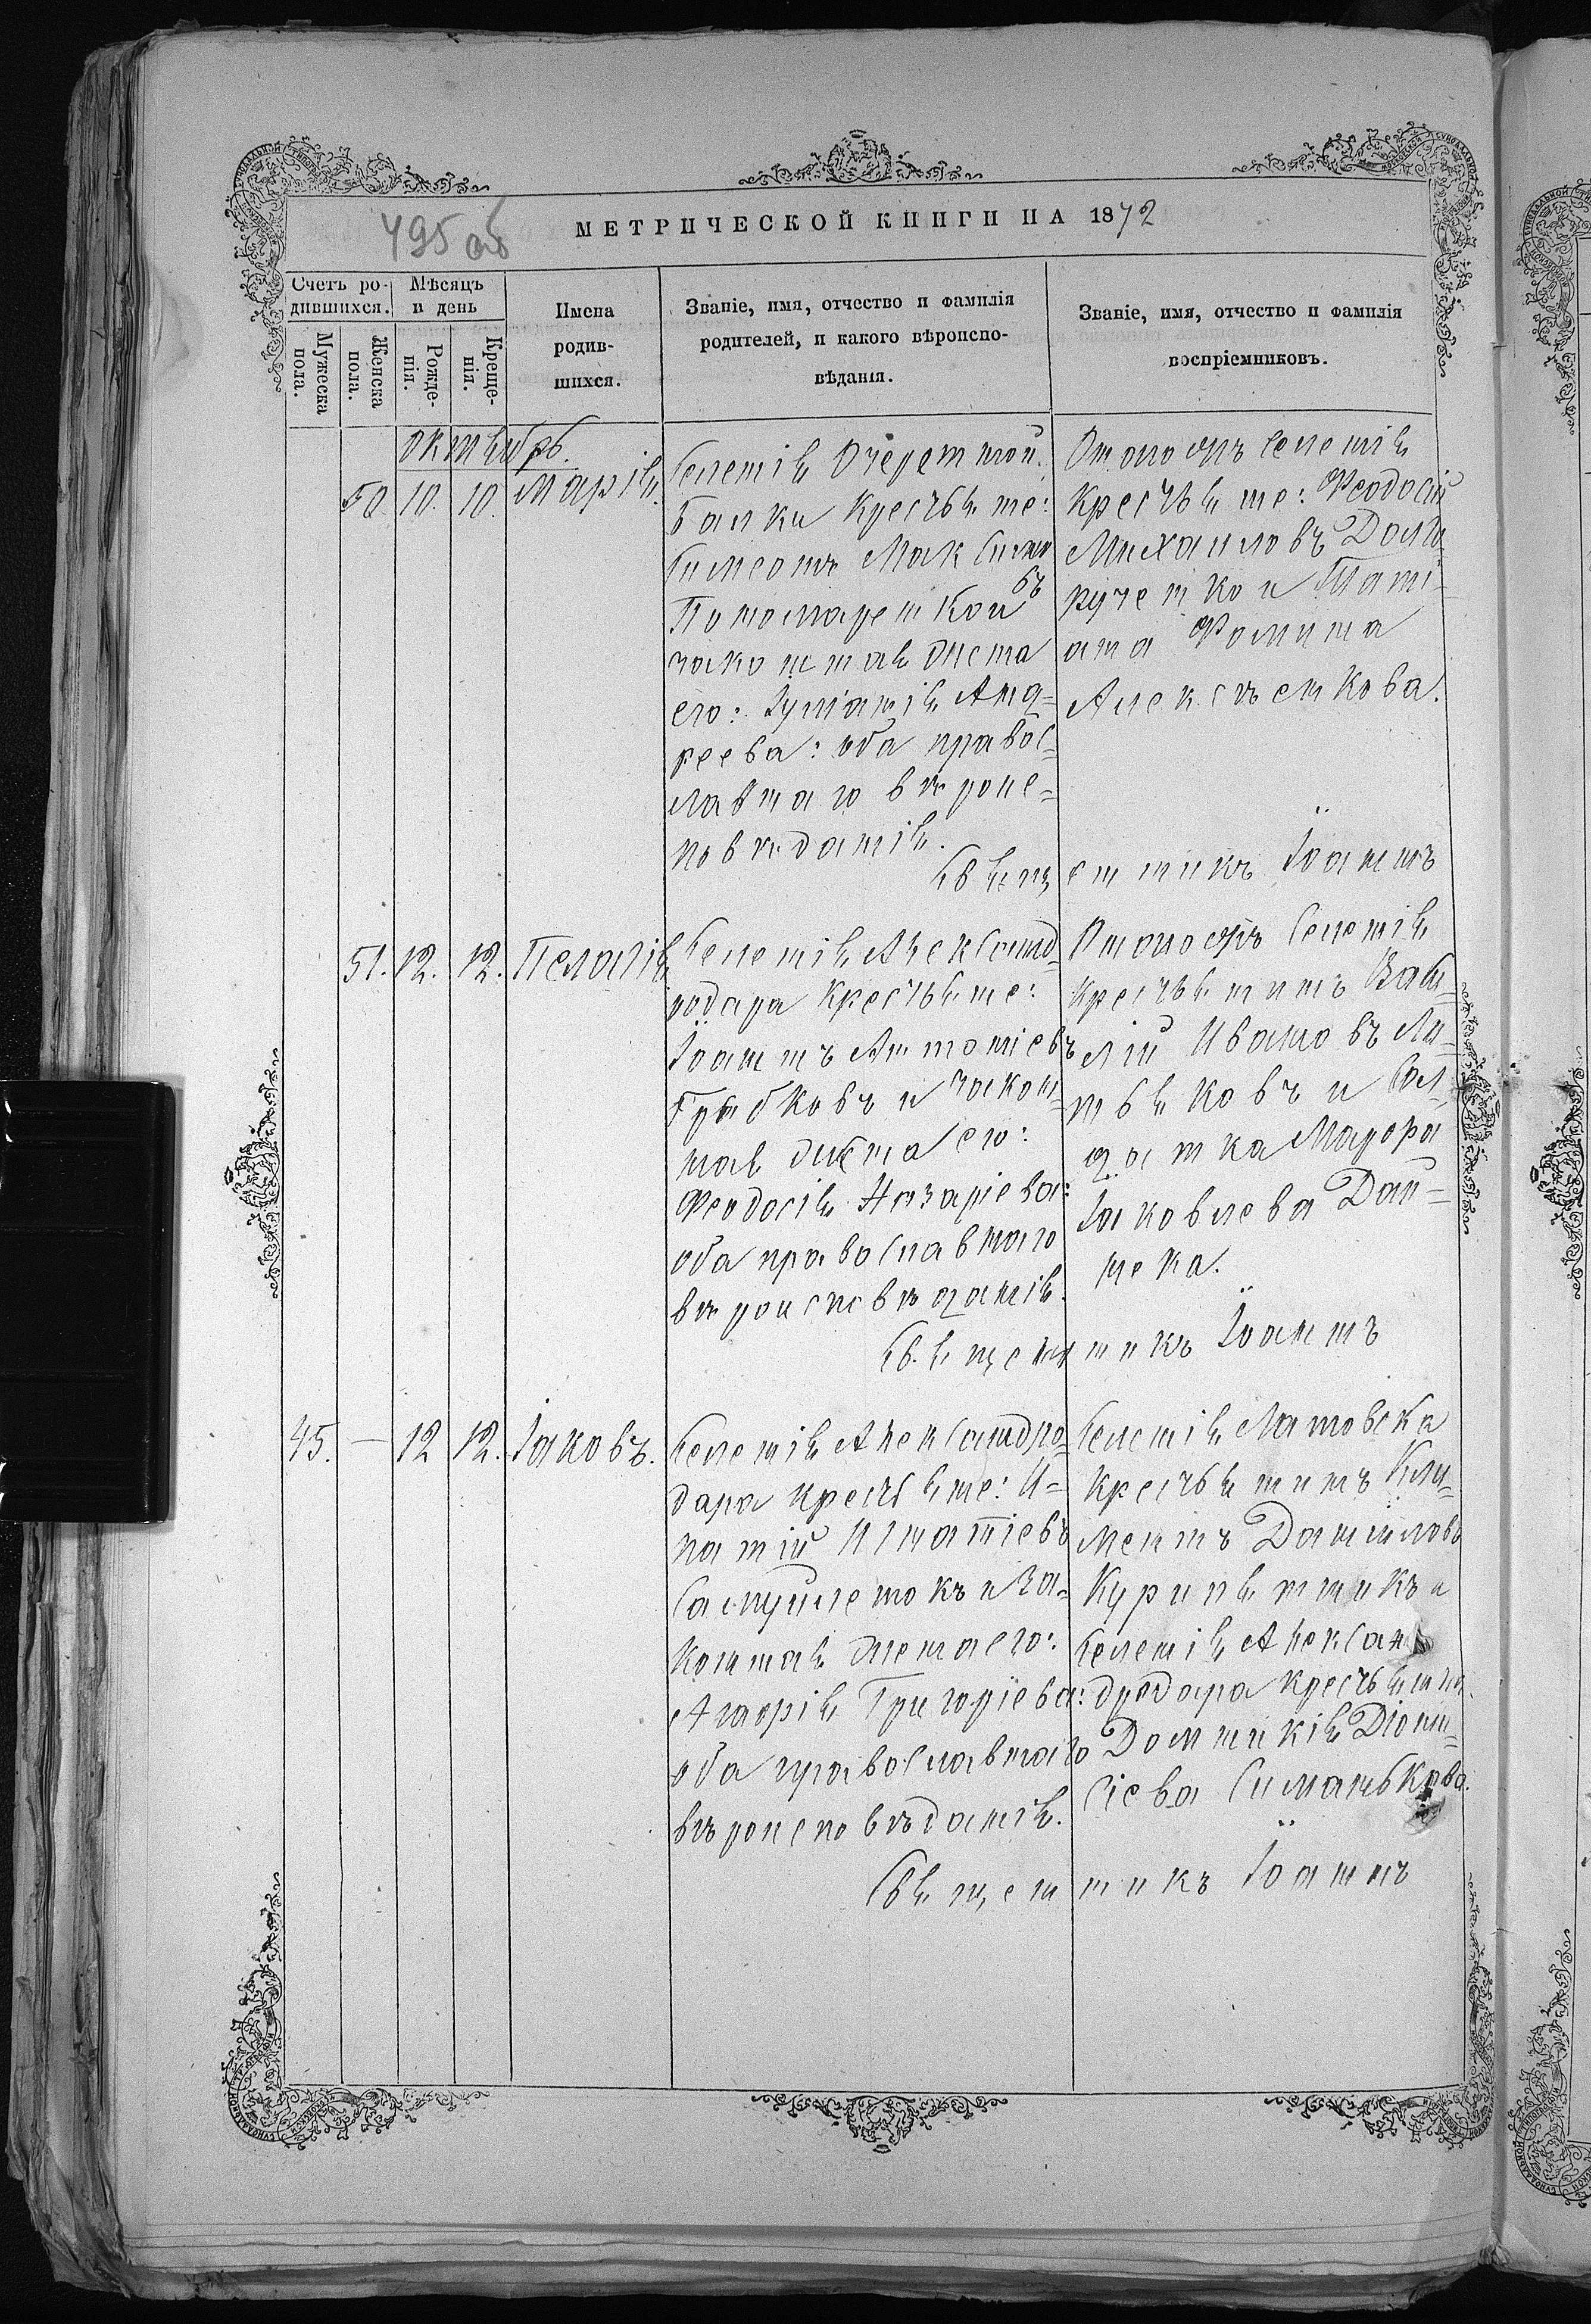 495 об
МЕТРИЧЕСКОЙ КНИГИ НА 1872
Счетъ ро-
дившихся.
Мужеска пола.
Женска пола.
Мѣсяцъ
и день
Рожде-
нія.
Креще-
нія.
Имена
родив-
шихся.
Званіе, имя, отчество и фамилія
родителей, и какого вѣроиспо-
вѣданія.
Званіе, имя, отчество и фамилія
воспріемниковъ.
октябрь.
50 10. 10. Марія.
Селенія Очеретной
Балки Крестьяне:
Симеонъ Максимо
въ
Пономаренко и
законная жена
его: Іуліанія Анд=
реева: оба правос=
лавнаго вѣроис=
повѣданія.
Тогожъ селенія
Крестьяне: Феодосій
Михаиловъ Долго=
рученко и Таті=
ана Фомина
Алексѣенкова.
Священникъ Іоаннъ
51. 12. 12. Пелагія
Селенія Александ=
родара Крестьяне:
Іоаннъ Антоніевъ
Грибковъ и закон=
ная жена его:
Феодосія Назаріева:
оба православнаго
вѣроисповѣданія.
Тогожъ Селенія
крестьянинъ Васи=
лій Ивановъ Ли=
твяковъ и Сол=
датка Марфа
Іаковлева Дан=
Священникъ Іоаннъ
45. — 12 12. Іаковъ.
Селенія Александро=
дара крестьяне: И=
патій Игнатіевъ
и за=
конная жена его:
Агафія Григоріева:
оба православнаго
вѣроисповѣданія.
Селенія Латовска
крестьянинъ Кли=
ментъ Даниловъ
Курипятникъ и
селенія Алексан
дродара крестьянка
Домникія Діони=
сіева Симанькова.
Священникъ Іоаннъ